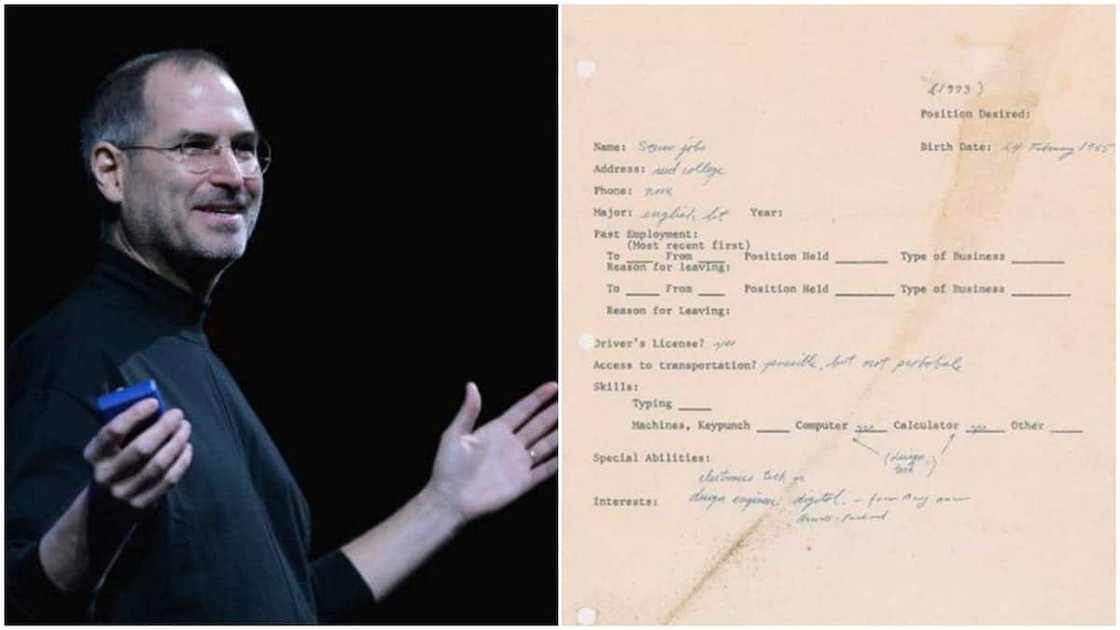 (1973)
Position Desired:
Name: Steven jobs Birth Date: 24 February 1955
Address: reed college
Phone: none
Major: english lit Year:
Past Employment:
(Most recent first)
To ____ From ____ Position Held ________ Type of Business ________
Reason for leaving:
To ____ From ____ Position Held ________ Type of Business ________
Reason for Leaving:
Driver's License? yes
Access to transportation? possible, but not probable
Skills:
Typing ____
Machines, Keypunch ____ Computer yes Calculator yes Other ____
(design, tech)
Special Abilities:
electronics tech or
Interests: design engineer digital. - from Bay
Hewitt-Packard